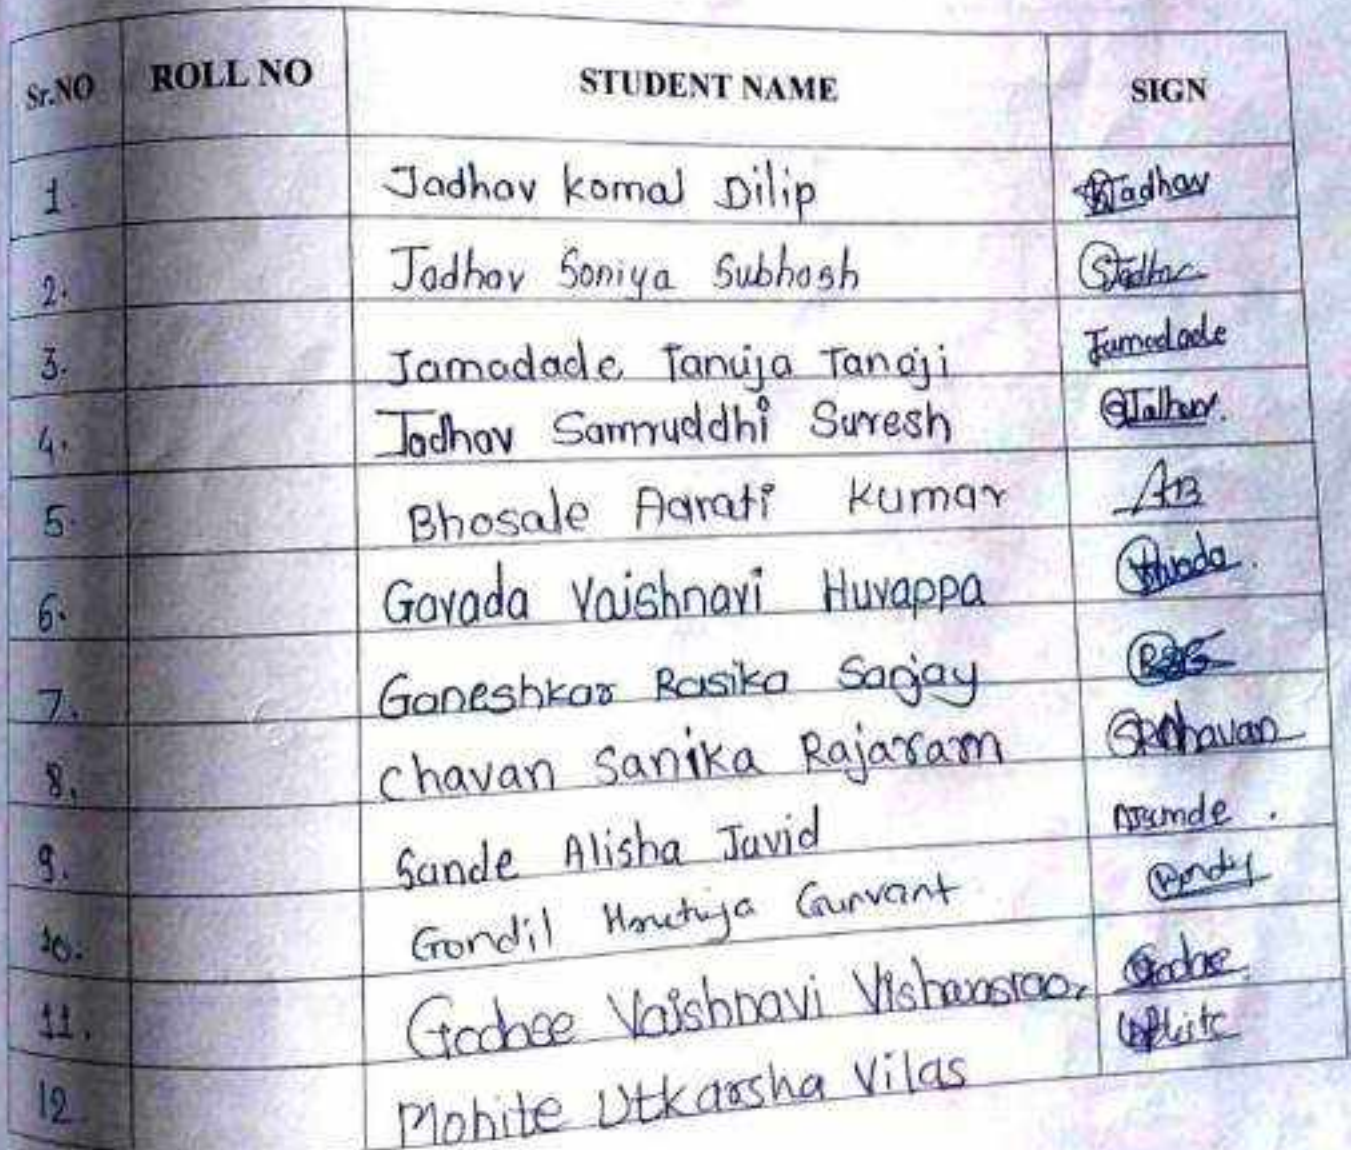 Sr.NO ROLL NO STUDENT NAME SIGN
1. Jadhav Komal Dilip Jadhav
2. Jadhav Soniya Subhash
3. Jamadade Tanuja Tanaji Jamadade
4. Jadhav Samruddhi Suresh
5. Bhosale Aarati Kumar AB
6. Gavada Vaishnavi Huvappa
7. Ganeshkar Rasika Sanjay
8. Chavan Sanika Rajaram SRChavan
9. Sande Alisha Javid
10. Gondil Gunvant
11. Godse Vaishnavi Vishwasrao.
12 Mohite Utkarsha Vilas